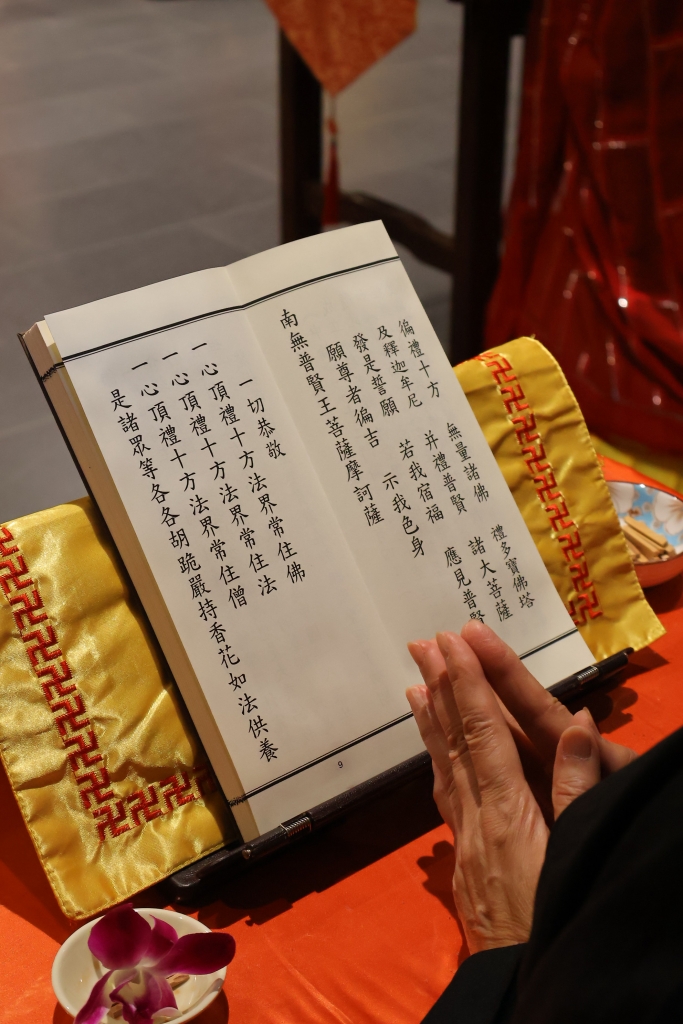 徧禮十方　無量諸佛　禮多寶佛塔
及釋迦牟尼　并禮普賢　諸大菩薩
發是誓願　若我宿福　應見普賢
願尊者徧吉　示我色身
南無普賢王菩薩摩訶薩
一切恭敬
一心頂禮十方法界常住佛
一心頂禮十方法界常住法
一心頂禮十方法界常住僧
是諸眾等各各胡跪嚴持香花如法供養
9